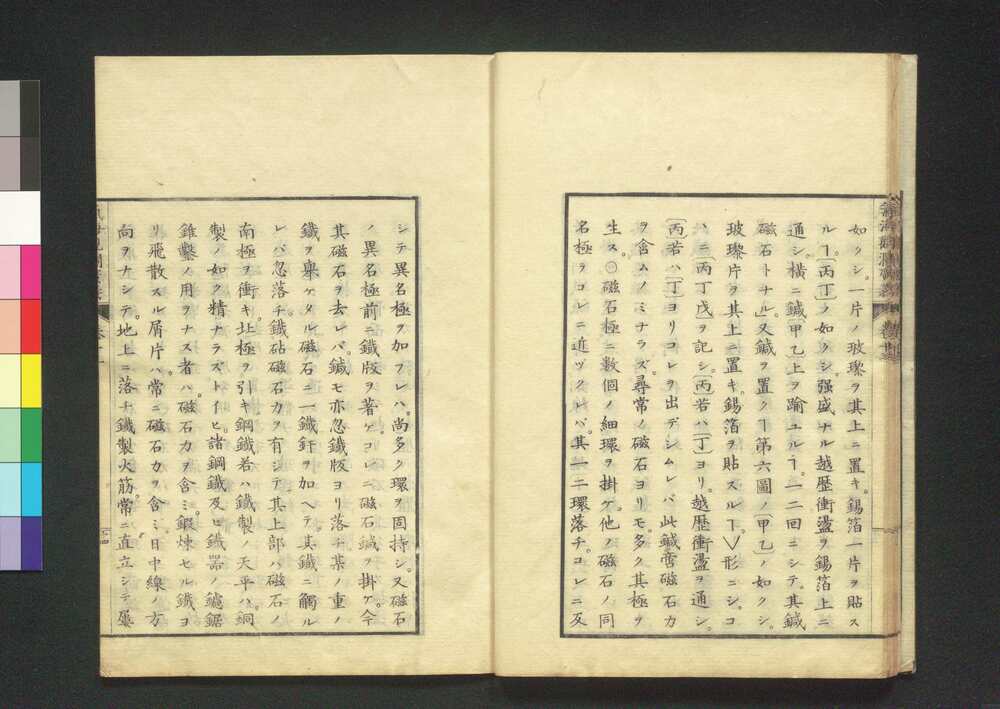 如クシ。一片ノ玻瓈ヲ其上ニ置キ。錫箔一片ヲ貼ス
ルヿ。〔丙丁〕ノ如クシ。强盛ナル越歴衝盪ヲ錫箔上ニ
通シ。橫ニ鍼〔甲乙〕上ヲ踰ユルヿ。一二回ニシテ。其鍼
磁石トナル。又鍼ヲ置クヿ第六圖ノ〔甲乙〕ノ如クシ。
玻瓈片ヲ其上ニ置キ。錫箔ヲ貼スルヿ。V形ニシ。コ
ハニ〔丙丁戊ヲ記シ〕〔丙若ハ〔丁〕ヨリ。越歴衝盪ヲ通シ。
〔丙若ハ〔丁〕ヨリコレヲ出デシムレバ。此鍼啻磁石力
ヲ含ムノミナラズ。尋常ノ磁石ヨリモ。多ク其極ヲ
生ス。◎磁石極ニ數個ノ細環ヲ掛ケ。他ノ磁石ノ同
名極ヲコレニ近ヅクレバ。其一二環落チ。コレニ反
シテ異名極ヲ加フレハ。尚多ク環ヲ固持シ。又磁石
ノ異名極前ニ鐵版ヲ著ケ。コレニ磁石鍼ヲ掛ケ。今
其磁石ヲ去レバ。鍼モ亦忽鐵版ヨリ落チ。某ノ重ノ
鐵ヲ擧ケタル磁石ニ。一鐵釬ヲ加ヘテ。其鐵ニ觸ル
レバ忽落チ。鐵砧磁石力ヲ有シテ其上部ハ磁石ノ
南極ヲ衝キ。北極ヲ引キ鋼鐵若ハ鐵製ノ天平ハ。銅
製ノ如ク精ナラズトイヒ。諸鋼鐵及ヒ鐵器ノ鑢鋸
錐鑿ノ用ヲナス者ハ。磁石力ヲ含ミ。鍛煉セル鐵ヨ
リ飛散スル屑片ハ常ニ磁石力ヲ含ミ日中線ノ方
向ヲナシテ。地上ニ落チ。鐵製火筋常ニ直立シテ屢